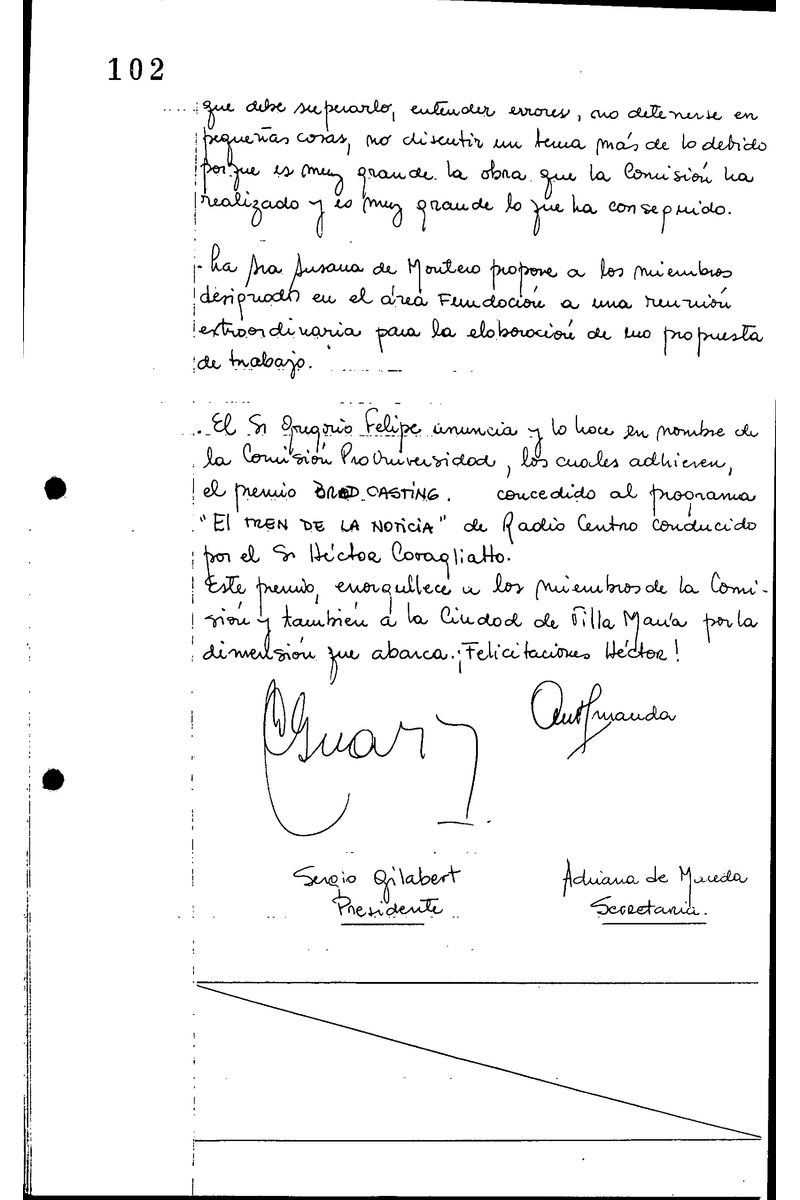 102
que debe superarlo, entender errores, no detenerse en
pequeñas cosas, no discutir un tema más de lo debido
porque es muy grande la obra que la Comisión ha
realizado y es muy grande lo que ha conseguido.
- La Sra Susana de Montero propone a los miembros
designados en el área Fundación a una reunión
extraordinaria para la elaboración de una propuesta
de trabajo.
. El Sr Gregorio Felipe anuncia y lo hace en nombre de
la Comisión ProUniversidad, los cuales adhieren,
el premio BROD CASTING. concedido al programa
"El TREN DE LA NOTICIA" de Radio Centro conducido
por el Sr Héctor Cavagliatto.
Este premio, enorgullece a los miembros de la Comi-
sión y también a la Ciudad de Villa María por la
dimensión que abarca. ¡Felicitaciones Héctor!
Sergio Gilabert
Presidente
Adriana de
Secretaria.